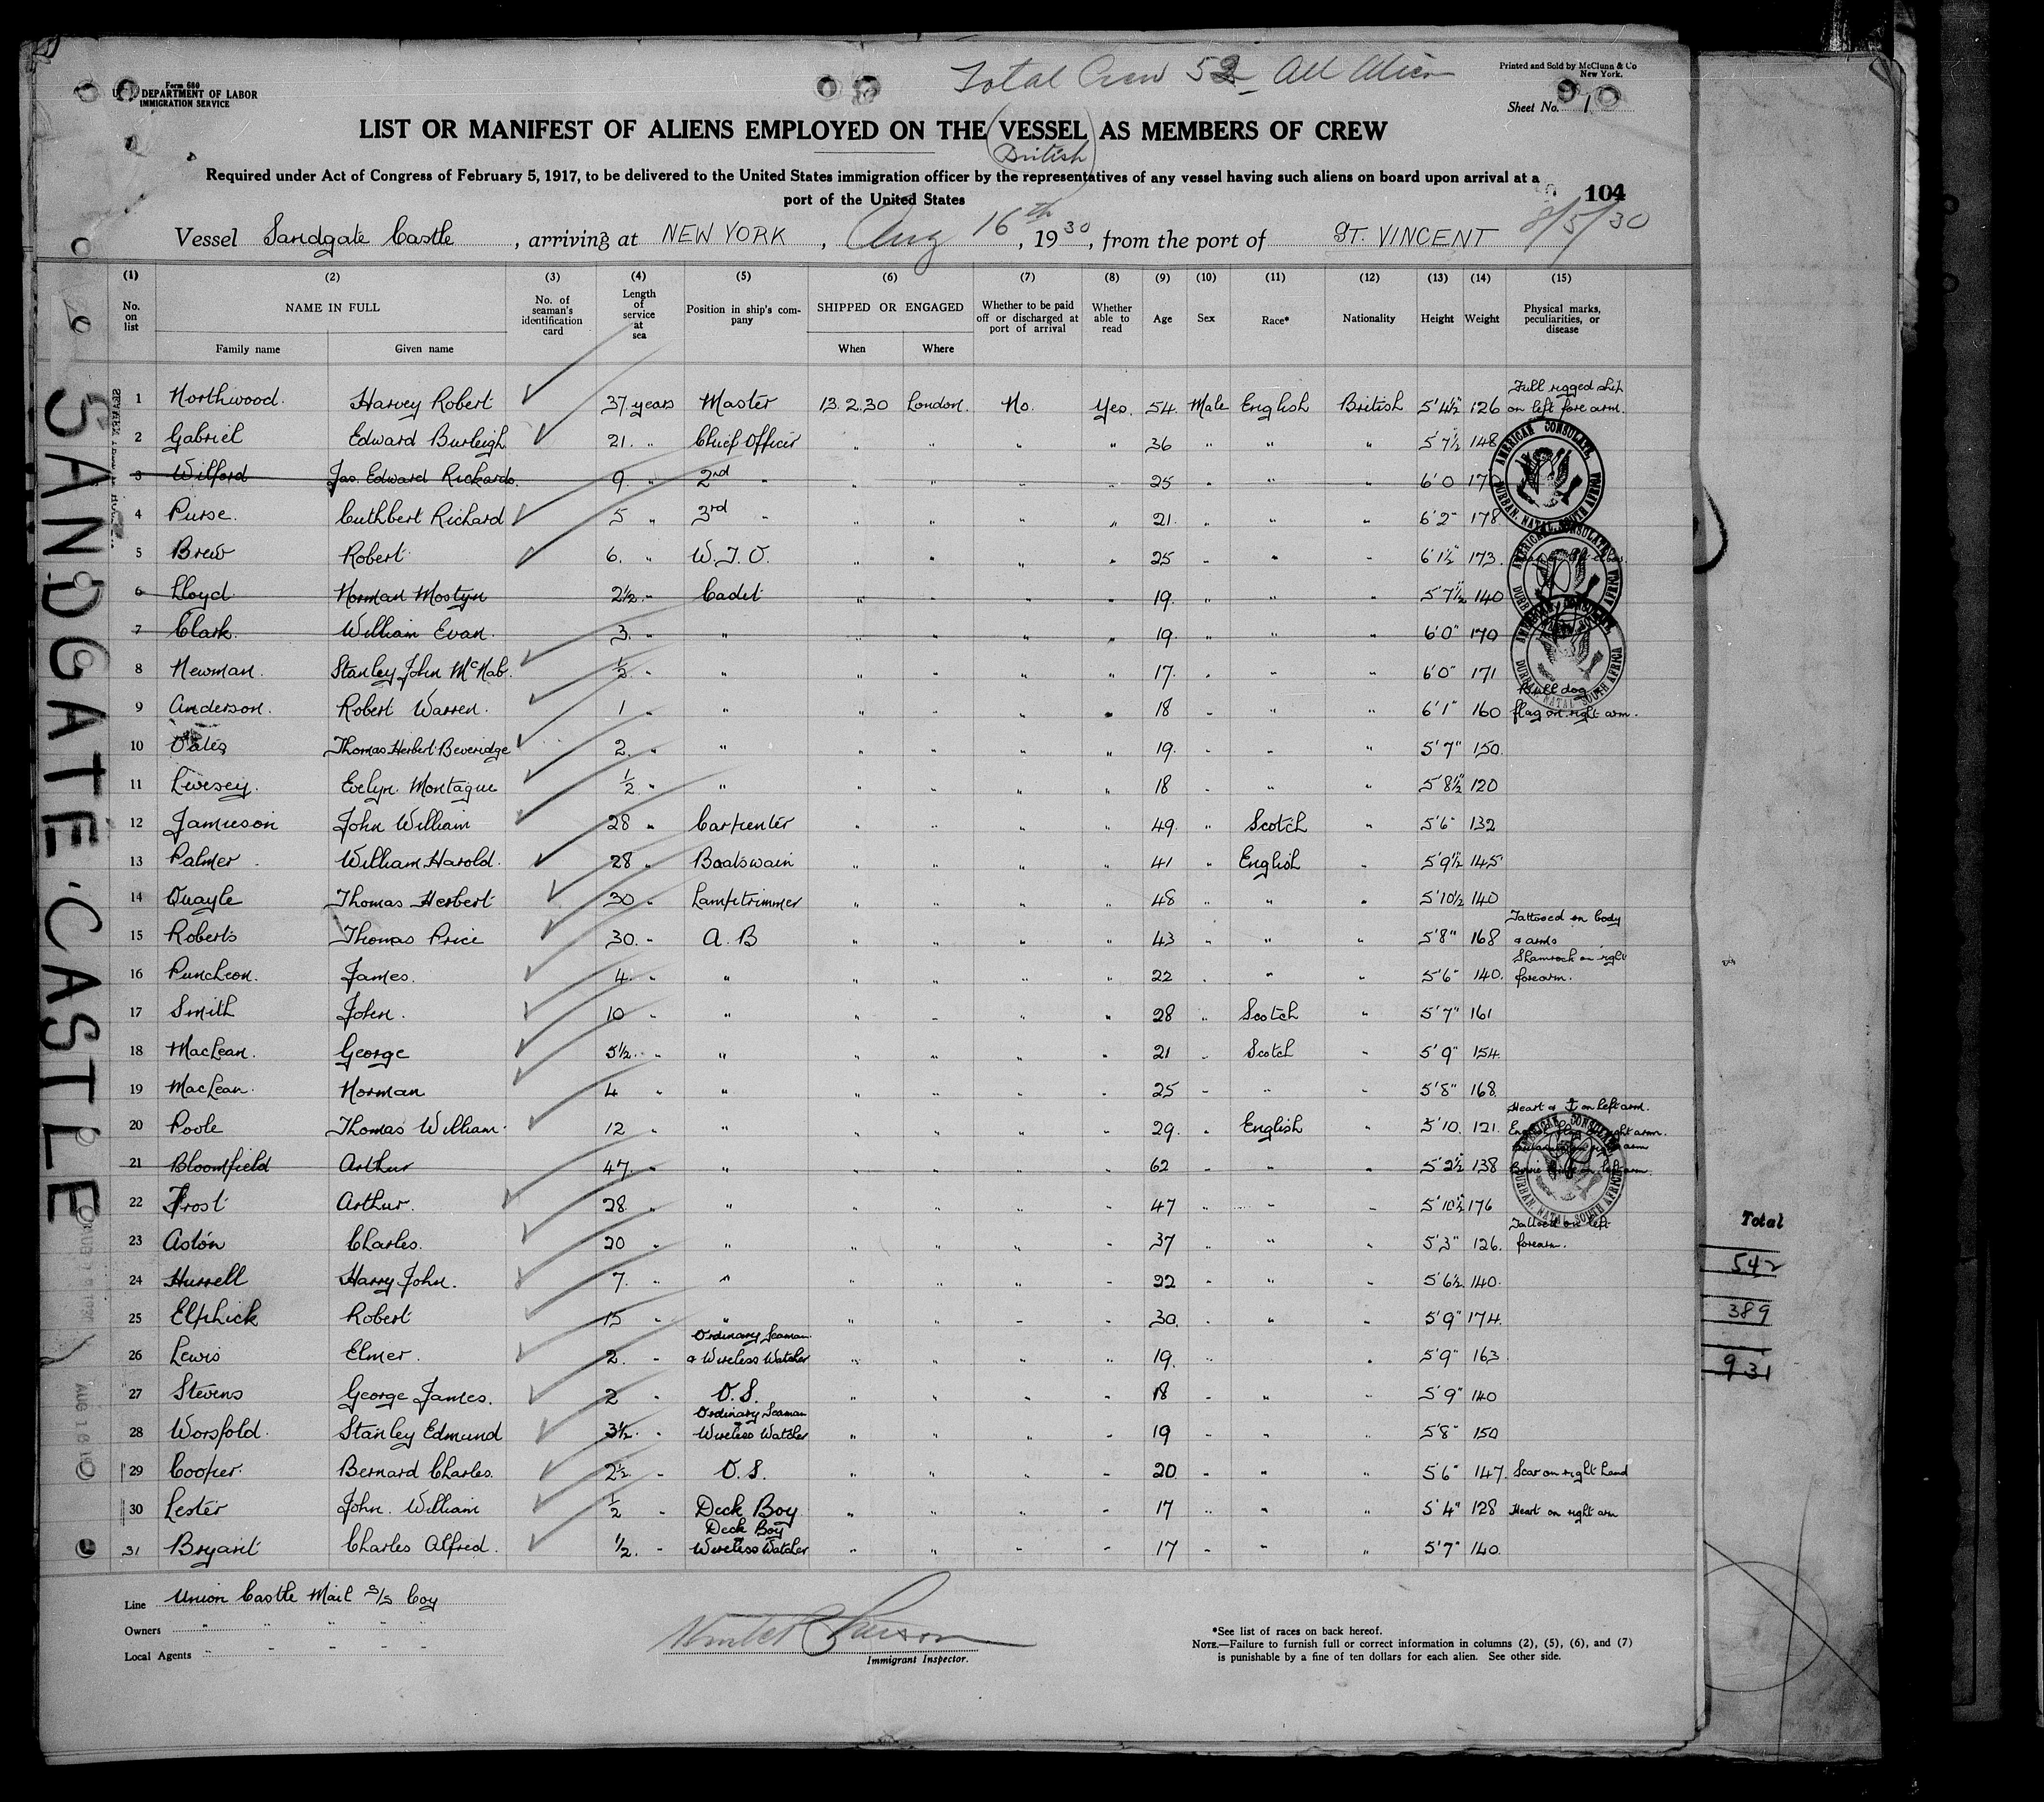 Total Crew 52 All Alien
Form 680
U. S. DEPARTMENT OF LABOR
IMMIGRATION SERVICE
Printed and Sold by McClunn & Co
New York.
Sheet No. 1
LIST OR MANIFEST OF ALIENS EMPLOYED ON THE VESSEL AS MEMBERS OF CREW
British
Required under Act of Congress of February 5, 1917, to be delivered to the United States immigration officer by the representatives of any vessel having such aliens on board upon arrival at a
port of the United States
104
8/5/30
Vessel Sandgate Castle, arriving at NEW YORK, Aug 16th, 1930, from the port of ST. VINCENT
(1) (2) (3) (4) (5) (6) (7) (8) (9) (10) (11) (12) (13) (14) (15)
No. on list NAME IN FULL No. of seaman's identification card Length of service at sea Position in ship's company SHIPPED OR ENGAGED Whether to be paid off or discharged at port of arrival Whether able to read Age Sex Race* Nationality Height Weight Physical marks, peculiarities, or disease
Family name Given name When Where
1 Northwood. Harvey Robert 37 years Master 13.2.30 London. No. Yes. 54 Male English British 5'4½" 126 Full rigged ship on left fore arm.
2 Gabriel Edward Burleigh 21 " Chief Officer " " " " 36 " " " 5'7½ 148
3 Wilford Jas. Edward Rickards. 9 " 2nd " " " " " 25 " " " 6'0 170
4 Purse. Cuthbert Richard 5 " 3rd " " " " " 21 " " " 6'2" 178
5 Brew Robert 6. " W.T.O. " " " " 25 " " " 6'1½" 173
6 Lloyd Norman Mostyn 2½ " Cadet " " " " 19. " " " 5'7½ 140
7 Clark. William Evan. 3. " " " " " " 19. " " " 6'0" 170
8 Newman. Stanley John McNab. ½ " " " " " " 17. " " " 6'0" 171
9 Anderson. Robert Warren. 1 " " " " " " 18 " " " 6'1" 160 Bulldog & flag on right arm.
10 Oates Thomas Herbert Beveridge 2. " " " " " " 19. " " " 5'7" 150.
11 Livesey. Evelyn Montague ½ " " " " " " 18 " " " 5'8½" 120
12 Jamieson John William 28 " Carpenter " " " " 49. " Scotch " 5'6" 132
13 Palmer William Harold. 28 " Boatswain " " " " 41 " English " 5'9½" 145
14 Quayle Thomas Herbert 30 " Lamptrimmer " " " " 48 " " " 5'10½ 140
15 Roberts Thomas Price 30. " A.B " " " " 43 " " " 5'8" 168 Tattooed on body & arms
16 Puncheon. James. 4. " " " " " " 22 " " " 5'6" 140. Shamrock on right forearm.
17 Smith John. 10 " " " " " " 28 " Scotch " 5'7" 161
18 MacLean. George 5½ " " " " " " 21 " Scotch " 5'9" 154.
19 MacLean. Norman 4 " " " " " " 25 " " " 5'8" 168.
20 Poole Thomas William. 12 " " " " " " 29. " English " 5'10. 121. Heart & on left arm.
21 Bloomfield Arthur 47. " " " " " " 62 " " " 5'2½ 138
22 Frost Arthur. 28. " " " " " " 47 " " " 5'10½ 176
23 Aston Charles. 20 " " " " " " 37 " " " 5'3" 126. Tattooed on left forearm.
24 Hurrell Harry John. 7. " " " " " " 22 " " " 5'6½ 140.
25 Elphick Robert 15 " " " " " " 30. " " " 5'9" 174.
26 Lewis Elmer. 2. " Ordinary Seaman & Wireless Watcher " " " " 19. " " 5'9" 163
27 Stevens George James. 2 " O.S. " " " " 18 " " " 5'9" 140
28 Worsfold. Stanley Edmund 3½. " Ordinary Seaman Wireless Watcher " " " " 19 " " " 5'8" 150
29 Cooper. Bernard Charles. 2½ " O.S. " " " " 20 " " " 5'6" 147. Scar on right hand
30 Lester John William ½ " Deck Boy " " " " 17 " " " 5'4" 128 Heart on right arm
31 Bryant Charles Alfred. ½. " Deck Boy Wireless Watcher " " " " 17 " " " 5'7" 140.
AMERICAN CONSULATE, DURBAN, NATAL, SOUTH AFRICA
AMERICAN CONSULATE, DURBAN, NATAL, SOUTH AFRICA
AMERICAN CONSULATE, DURBAN, NATAL, SOUTH AFRICA
AMERICAN CONSULATE, DURBAN, NATAL, SOUTH AFRICA
SANDGATE·CASTLE
Total
542
389
931
Line Union Castle Mail S/S Coy
Owners " " " " "
Local Agents " " " " "
Immigrant Inspector.
*See list of races on back hereof.
NOTE.—Failure to furnish full or correct information in columns (2), (5), (6), and (7)
is punishable by a fine of ten dollars for each alien. See other side.